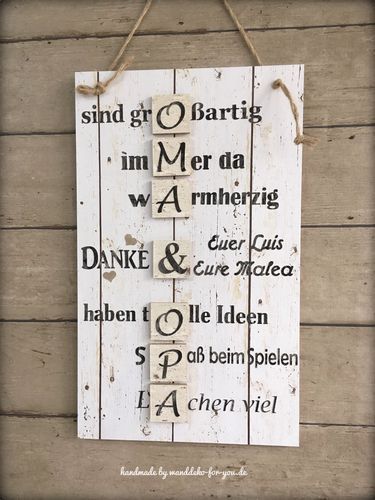 sind großartig
immer da
warmherzig
DANKE & Euer Luis
Eure Malea
haben tolle Ideen
Spaß beim Spielen
Lachen viel
handmade by wanddeko-for-you.de